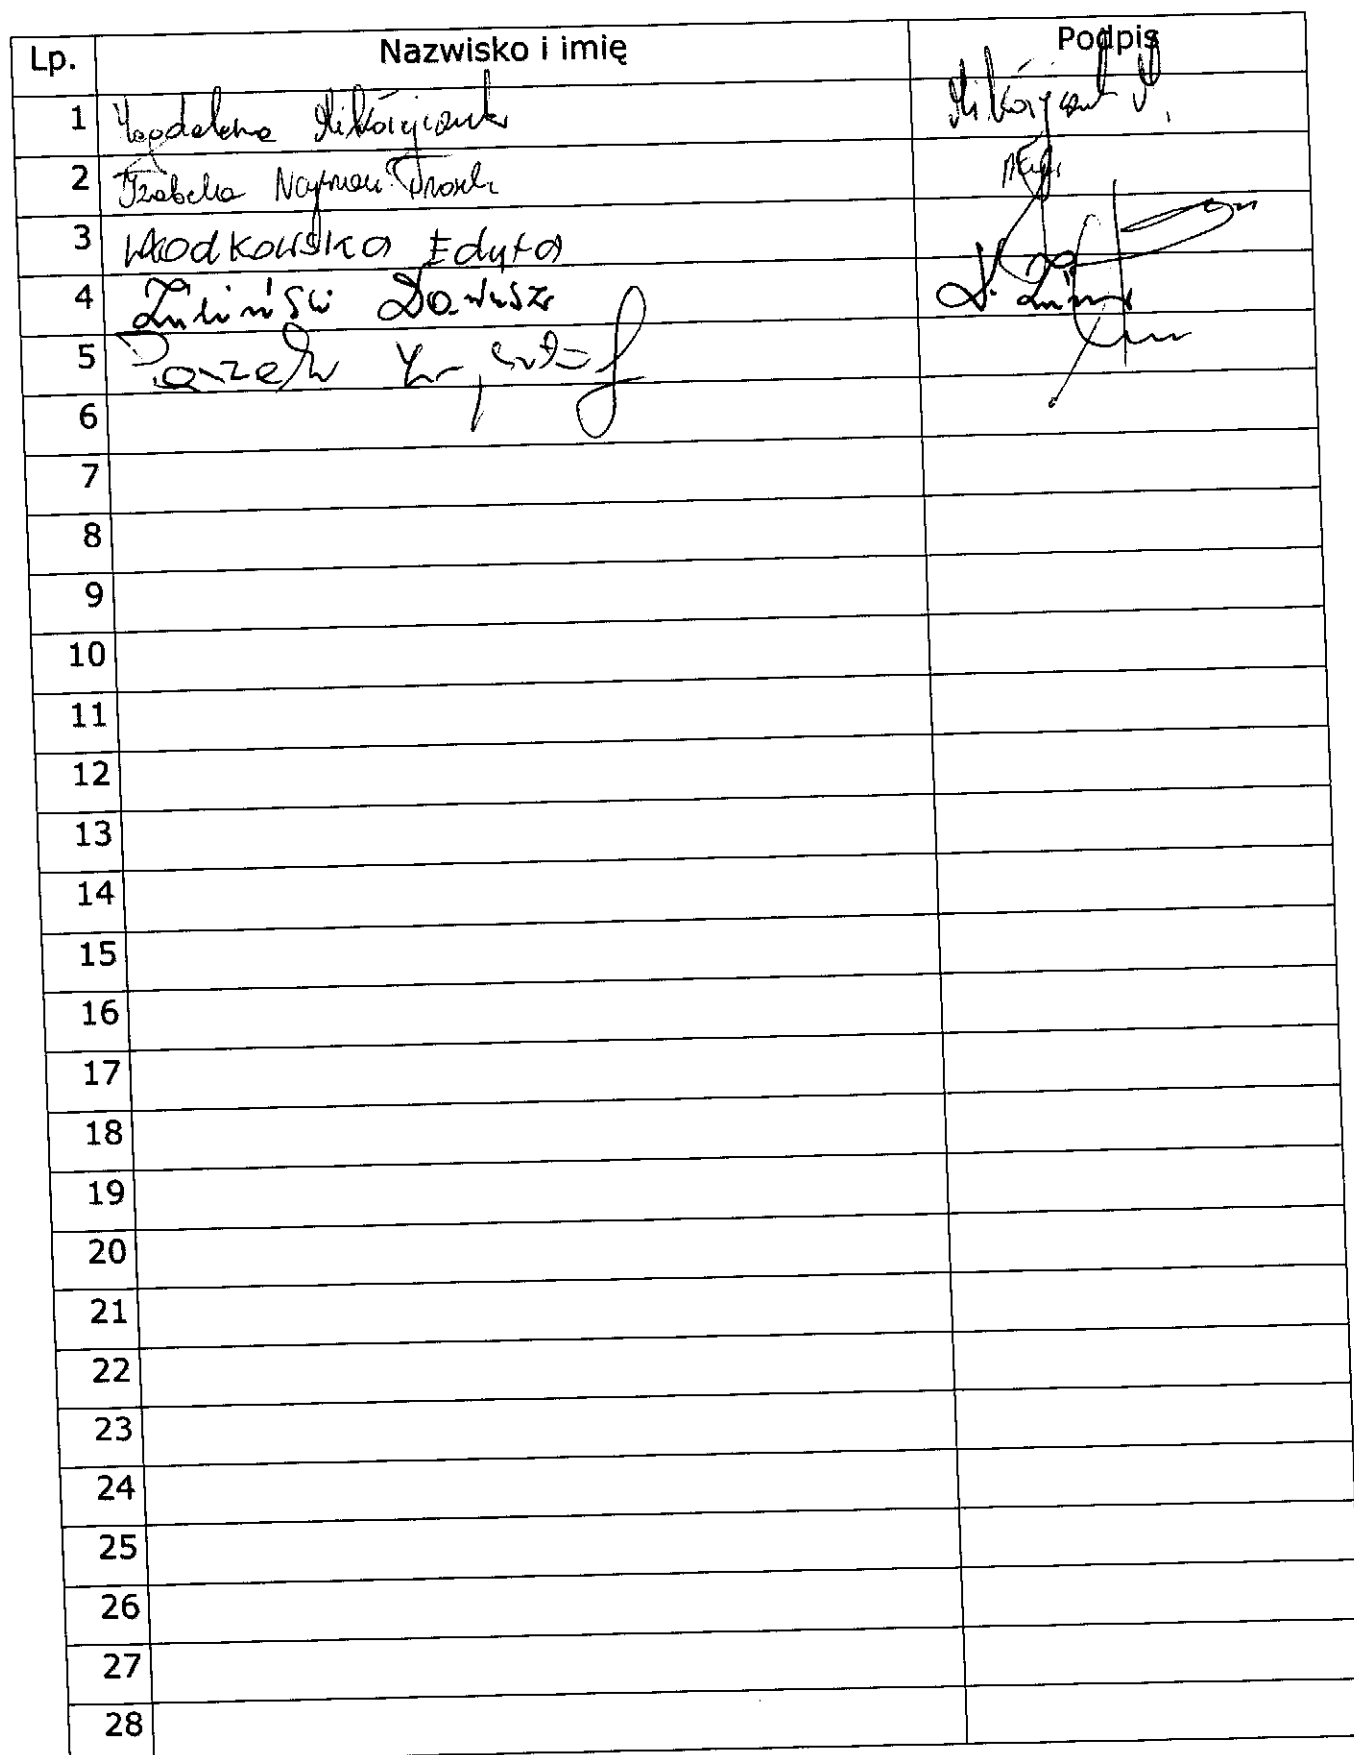 Lp. Nazwisko i imię Podpis
1 Magdalena Mikołajczuk Mikołajczuk M.
2 Izabela Najman
3 Wodkowska Edyta
4 Dariusz D.
5 Krzysztof
6
7
8
9
10
11
12
13
14
15
16
17
18
19
20
21
22
23
24
25
26
27
28